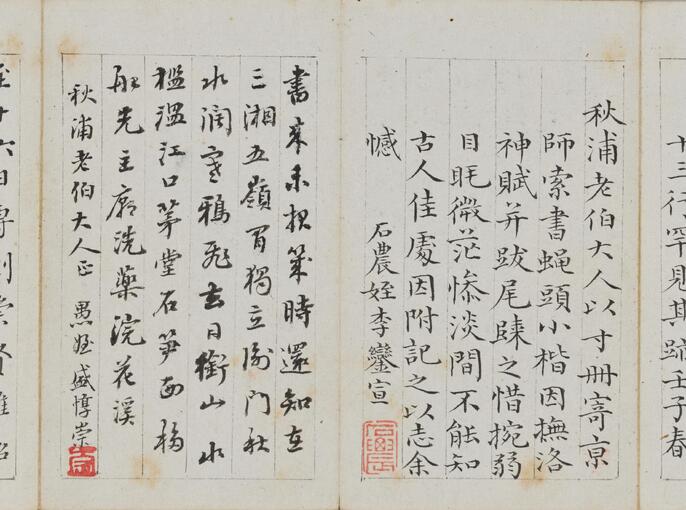 十三行罕見其跡壬子春
秋浦老伯大人以寸册寄京
師索書蝇頭小楷因撫洛
神賦并跋尾踈之惜捥弱
目眊微茫惨淡間不能知
古人佳處因附記之以志余
憾 石農姪李鑾宣
書來未報幾時還知在
三湘五嶺間獨立衡門秋
水闊寒鴉飛去日銜山水
檻溫江口茅堂石筍西移
船先主廟洗藥浣花溪
秋浦老伯大人正 愚姪盛惇崇
十六日